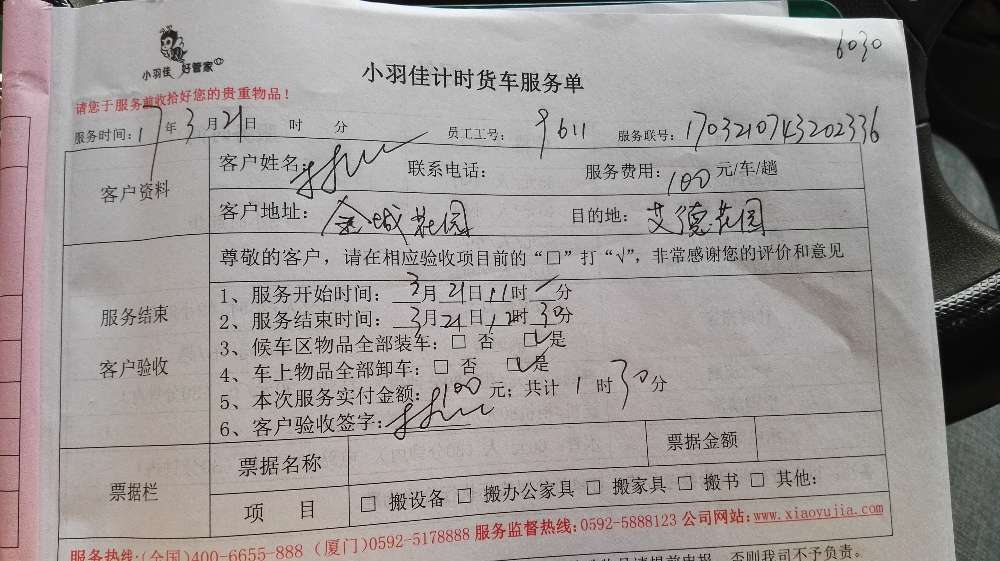 6030
小羽佳 好管家
小羽佳计时货车服务单
请您于服务前收拾好您的贵重物品！
服务时间：17年3月21日 时 分 员工工号：9611 服务联号：1703210743202336
客户资料
客户姓名： 联系电话： 服务费用：100元/车/趟
客户地址：金城花园 目的地：艾德花园
服务结束
客户验收
尊敬的客户，请在相应验收项目前的“□”打“√”，非常感谢您的评价和意见
1、服务开始时间：3月21日11时／分
2、服务结束时间：3月21日12时30分
3、候车区物品全部装车：□ 否 ☑是
4、车上物品全部卸车：□ 否 ☑是
5、本次服务实付金额：100元；共计 1 时30分
6、客户验收签字：
票据栏
票据名称 票据金额
项 目 □ 搬设备 □ 搬办公家具 □ 搬家具 □ 搬书 □ 其他：
服务热线：(全国)400-6655-888 (厦门)0592-5178888 服务监督热线：0592-5888123 公司网站：www.xiaoyujia.com
否则我司不予负责。